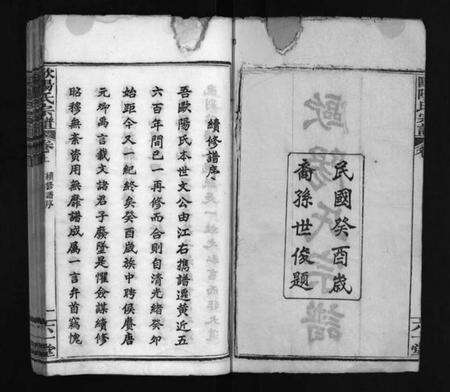 民國癸酉歲
裔孫世俊題
續修譜序
吾歐陽氏本世文公由江右攜譜遷黃近五
六百年間已一再修而合則自清光緒癸卯
始距今又一紀終矣癸酉歲族中聘侯賡唐
元卿萬言載文諸君子廢墜是懼僉謀續修
昭穆無紊資用無靡譜成屬一言弁首竊愧
歐陽氏宗譜 卷上 續修譜序 一 六一堂